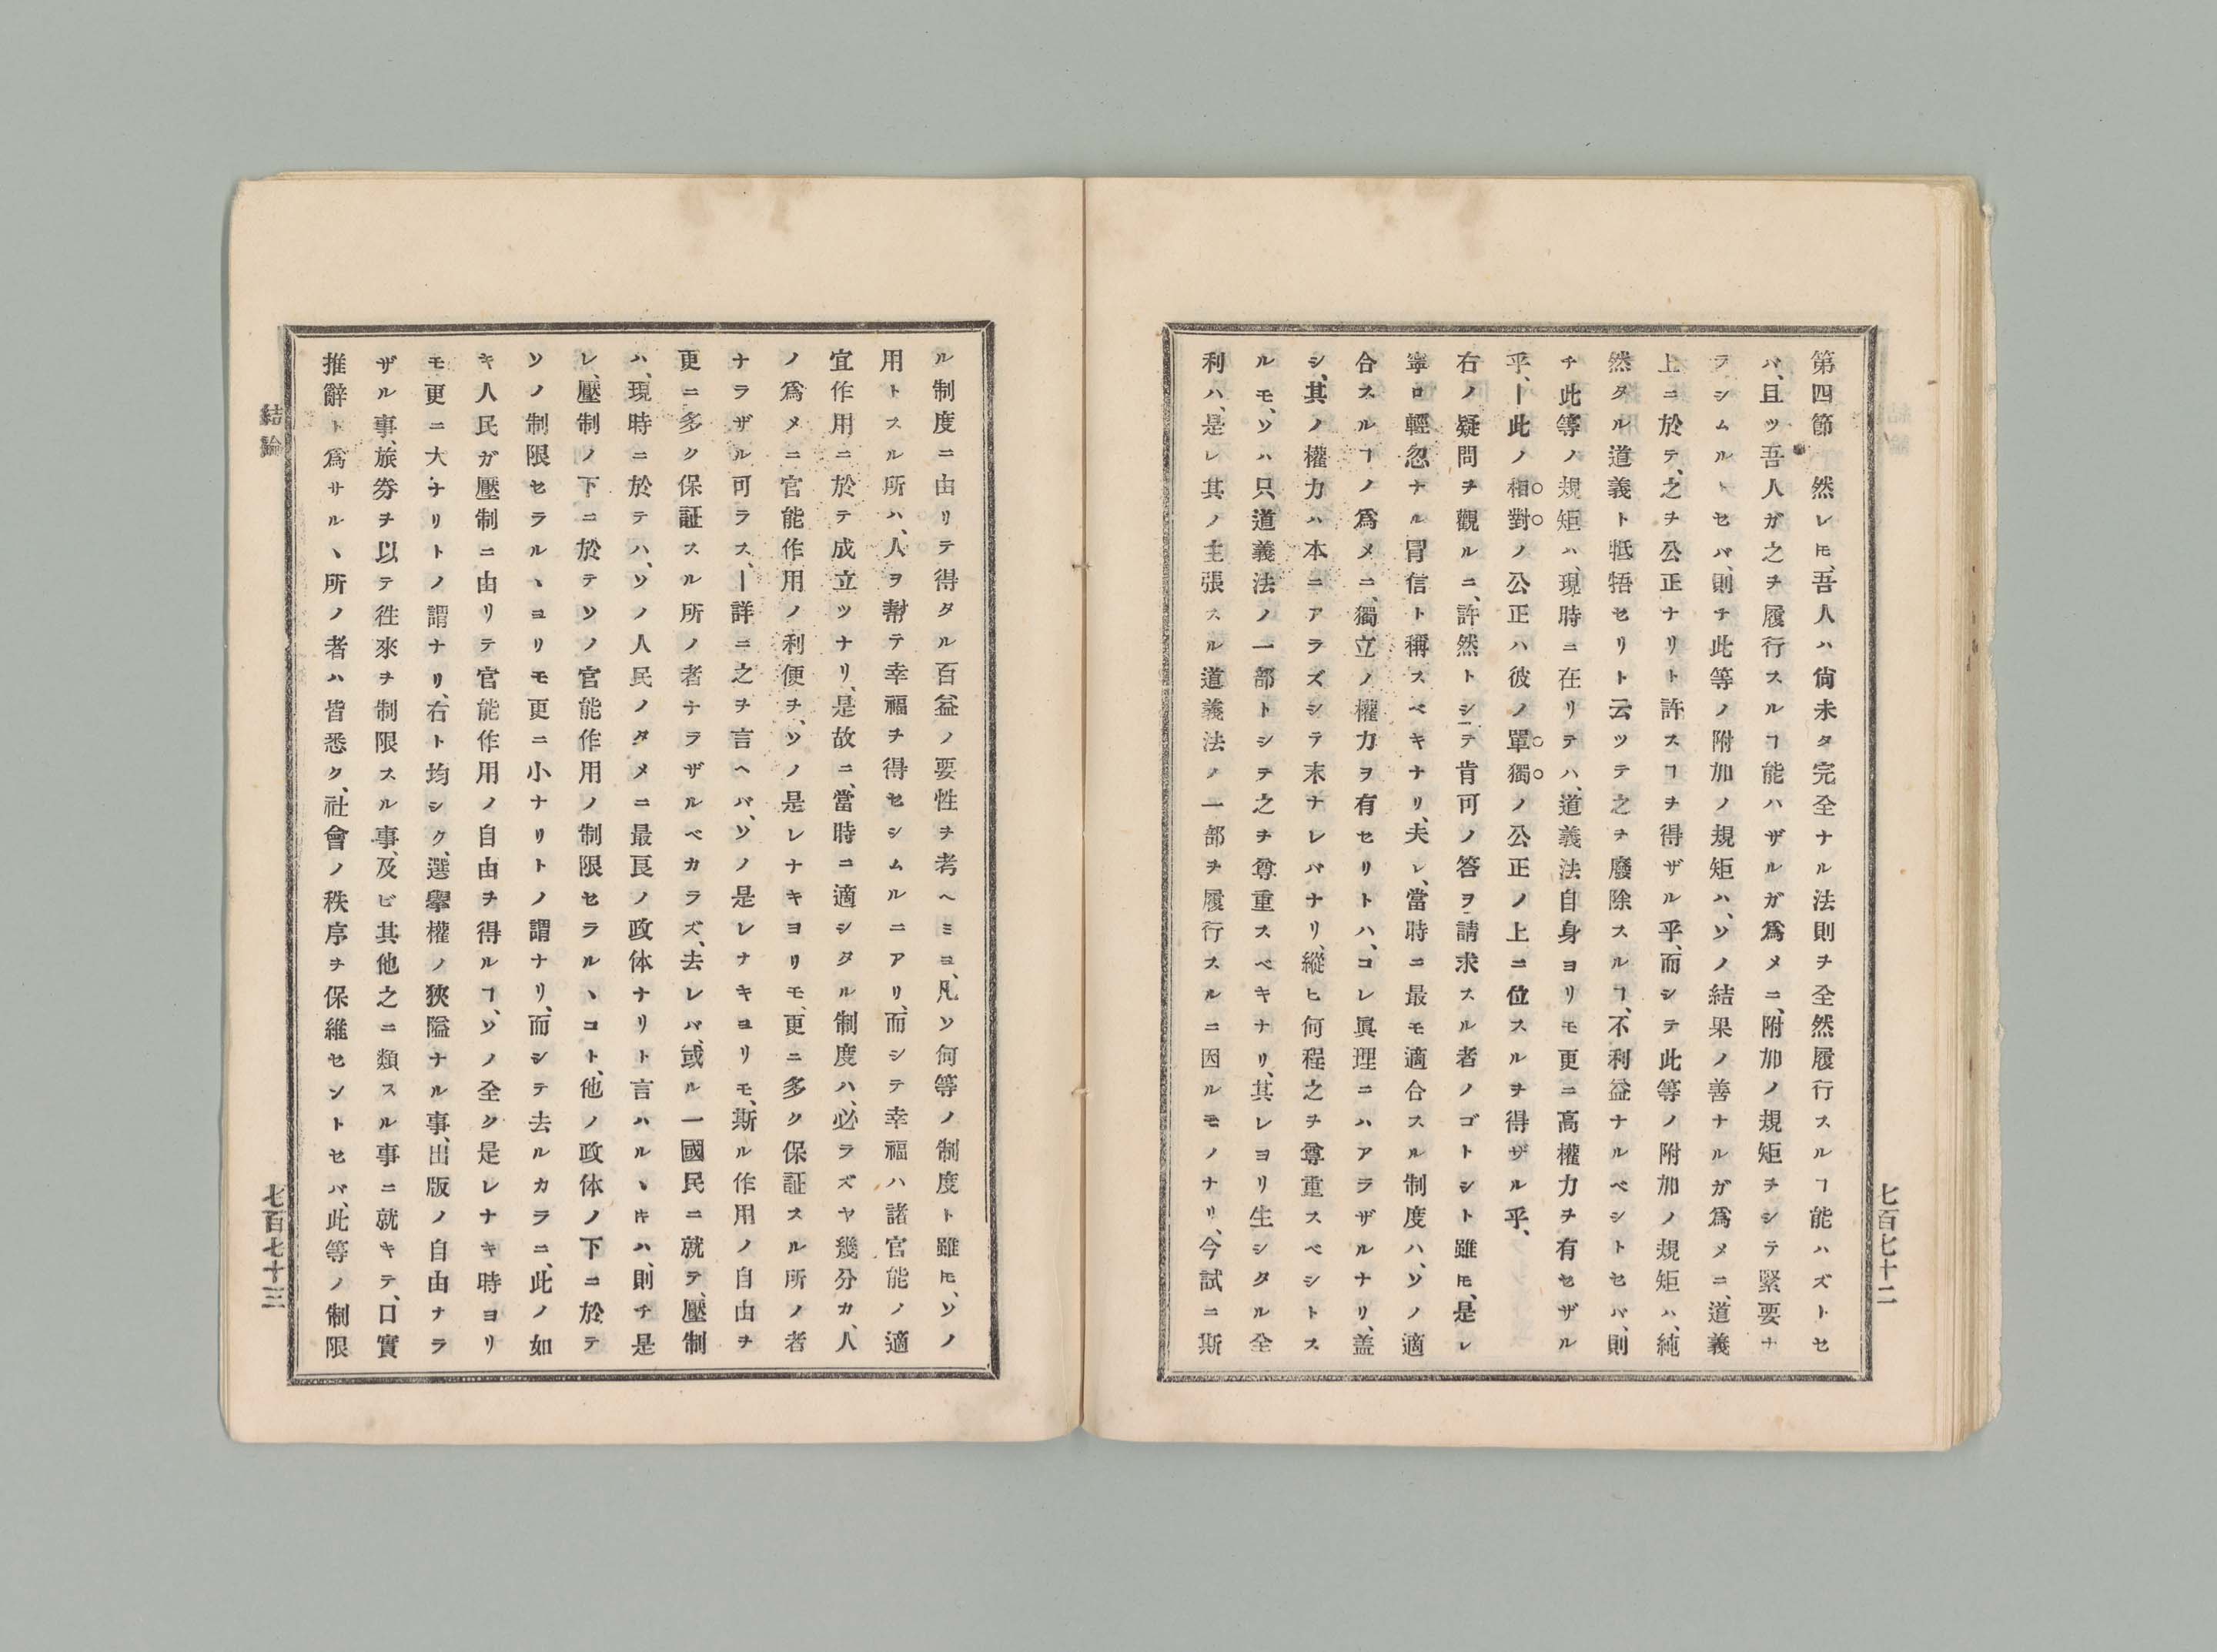 七百七十二
第四節　然レ𪜈、吾人ハ尙未タ完全ナル法則ヲ全然履行スルヿ能ハズトセ
バ、且ツ吾人ガ之ヲ履行スルヿ能ハザルガ爲メニ、附加ノ規矩ヲシテ緊要ナ
ラシムルトセバ、則チ此等ノ附加ノ規矩ハ、ソノ結果ノ善ナルガ爲メニ、道義
上ニ於テ、之ヲ公正ナリト許スヿヲ得ザル乎、而シテ此等ノ附加ノ規矩ハ、純
然タル道義ト牴牾セリト云ツテ之ヲ廢除スルヿ、不利益ナルベシトセバ、則
チ此等ノ規矩ハ、現時ニ在リテハ、道義法自身ヨリモ更ニ高權力ヲ有セザル
乎、―此ノ相對ノ公正ハ彼ノ單獨ノ公正ノ上ニ位スルヲ得ザル乎、
右ノ疑問ヲ觀ルニ、許然トシテ肯可ノ答ヲ請求スル者ノゴトシト雖𪜈、是レ
寧ロ輕忽ナル冐信ト稱スベキナリ、夫レ、當時ニ最モ適合スル制度ハ、ソノ適
合スルヿノ爲メニ、獨立ノ權力ヲ有セリトハ、コレ眞理ニハアラザルナリ、盖
シ、其ノ權力ハ本ニアラズシテ末ナレバナリ、縱ヒ何程之ヲ尊重スベシトス
ルモ、ソハ只道義法ノ一部トシテ之ヲ尊重スベキナリ、其レヨリ生シタル全
利ハ、是レ其ノ主張スル道義法ノ一部ヲ履行スルニ因ルモノナリ、今試ニ斯
ル制度ニ由リテ得タル百益ノ要性ヲ考ヘミヨ、凡ソ何等ノ制度ト雖𪜈、ソノ
用トスル所ハ、人ヲ幇テ幸福ヲ得セシムルニアリ、而シテ幸福ハ諸官能ノ適
宜作用ニ於テ成立ツナリ、是故ニ、當時ニ適シタル制度ハ、必ラズヤ幾分カ、人
ノ爲メニ官能作用ノ利便ヲ、ソノ是レナキヨリモ、更ニ多ク保証スル所ノ者
ナラザル可ラス、―詳ニ之ヲ言ヘバ、ソノ是レナキヨリモ、斯ル作用ノ自由ヲ
更ニ多ク保証スル所ノ者ナラザルベカラズ、去レバ、或ル一國民ニ就テ、壓制
ハ、現時ニ於テハ、ソノ人民ノタメニ最良ノ政体ナリト言ハルヽ𪜈ハ、則チ是
レ、壓制ノ下ニ於テソノ官能作用ノ制限セラルヽコト、他ノ政体ノ下ニ於テ
ソノ制限セラルヽヨリモ更ニ小ナリトノ謂ナリ、而シテ去ルカラニ、此ノ如
キ人民ガ壓制ニ由リテ官能作用ノ自由ヲ得ルヿ、ソノ全ク是レナキ時ヨリ
モ更ニ大ナリトノ謂ナリ、右ト均シク、選擧權ノ狹隘ナル事、出版ノ自由ナラ
ザル事、旅券ヲ以テ徃來ヲ制限スル事、及ビ其他之ニ類スル事ニ就キテ、口實
推辭ト爲サルヽ所ノ者ハ皆悉ク、社會ノ秩序ヲ保維セントセバ、此等ノ制限
結論
七百七十三